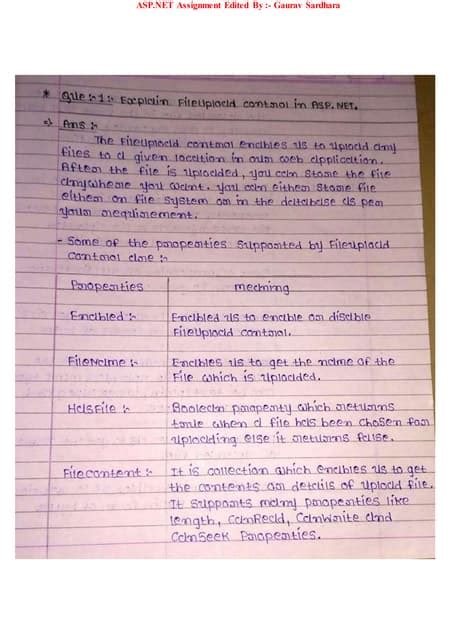 ASP.NET Assignment Edited By :- Gaurav Sardhara
* Que :- 1 :- Explain FileUpload control in ASP. NET.
=> Ans :-
The FileUpload control enables us to upload any
files to a given location in our web application.
After the file is uploaded, you can store the file
anywhere you want. you can either store file
either on file system or in the database as per
your requirement.
- Some of the properties supported by FileUpload
control are :-
Properties meaning
Enabled :- Enabled us to enable or disable
FileUpload control.
FileName :- Enables us to get the name of the
File which is uploaded.
HasFile :- Boolean property which returns
true when a file has been chosen for
uploading else it returns false.
Filecontent :- It is collection which enables us to get
the contents or details of upload file.
It supports many properties like
length, CanRead, CanWrite and
CanSeek Properties.